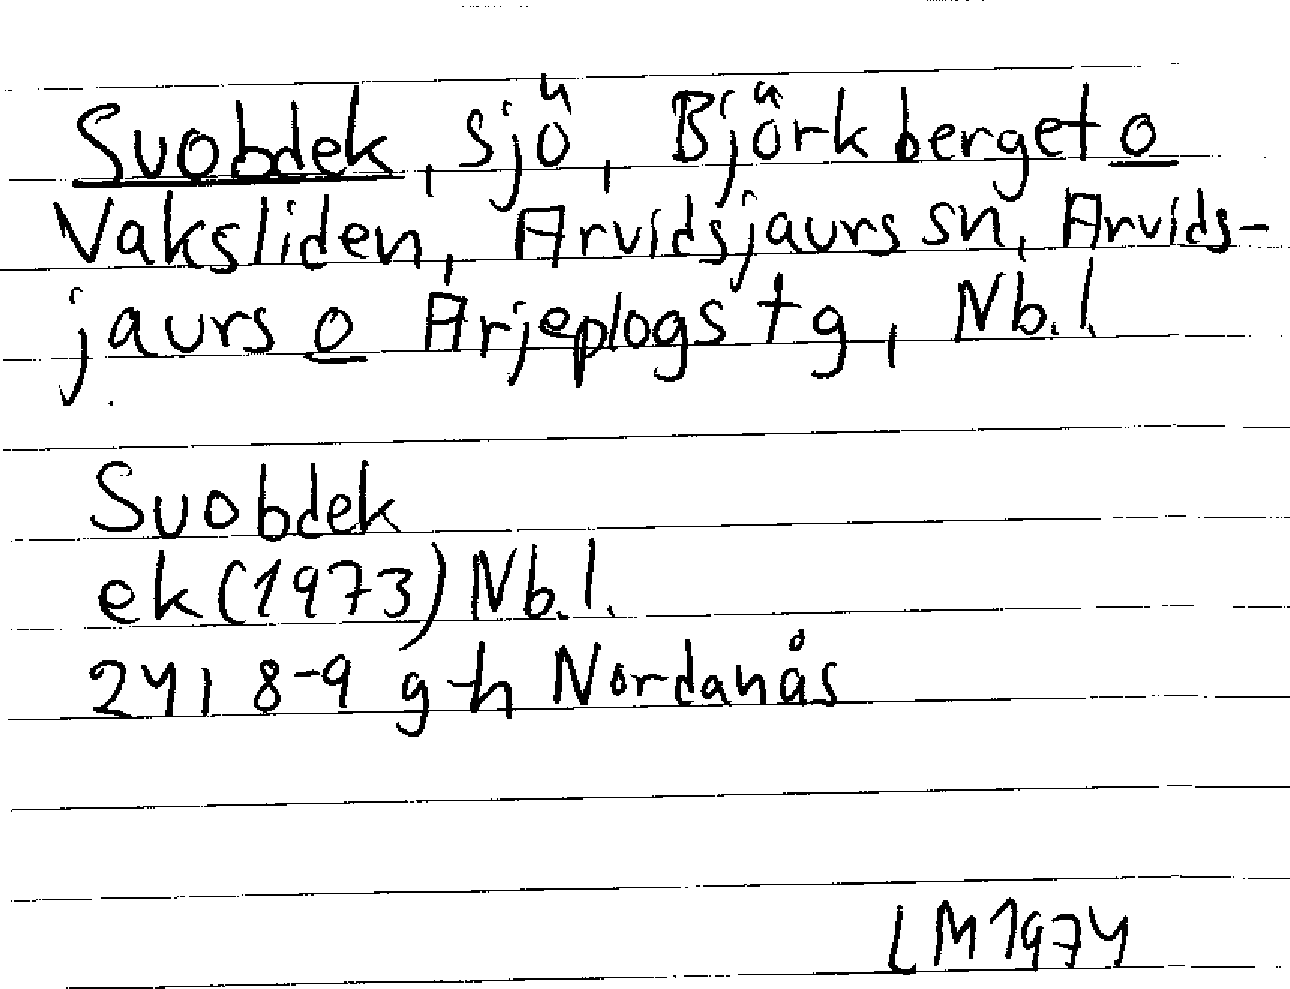 Suobdek, sjö, Björkberget o
Vaksliden, Arvidsjaurs sn, Arvids-
jaurs o Arjeplogs tg, Nb.l.
Suobdek
ek (1973) Nb.l.
24I 8-9 g-h Nordanås
LM 1974